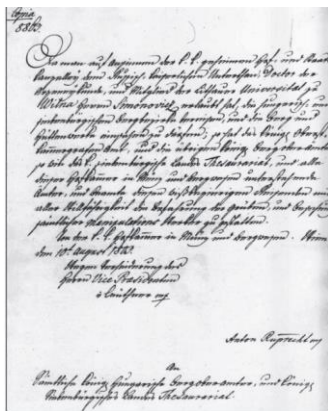 Copia
5803.
Da man auf Ansinnen der k. k. geheimen Hof- und Staats
Kanzelley dem Rußisch Kaiserlichen Unterthan, Doctor der
Arzneykunde, und Mitglied der Universität zu
Wilna Herrn Simonovicz erlaubt hat, die hungarisch und
siebenbürgischen Bergbezirke bereisen, und die Berg und
Hüttenwerke einfahren zu dürfen; so hat das königl. Oberst
Kammergrafen Amt, und die übrigen königl. Bergoberämter
so wie das k. siebenbürgische Landes Thesaurariat, und alle
dieser Hofkammer in Münz und Bergwesen unterstehende
Ämter, und Beamte diesen
aller
sämtlicher Manipulations Werke zu gestatten.
Von der k. k. Hofkammer in Münz und Bergwesen. Wien
den 10t. August 1803.
Wegen Verhinderung des
Herrn Vice Præsidenten
Anton Ruprecht mp
An
Sämtliche königl. Hungarische Bergoberämter, und königl.
Siebenbürgisches Landes Thesaurariat.